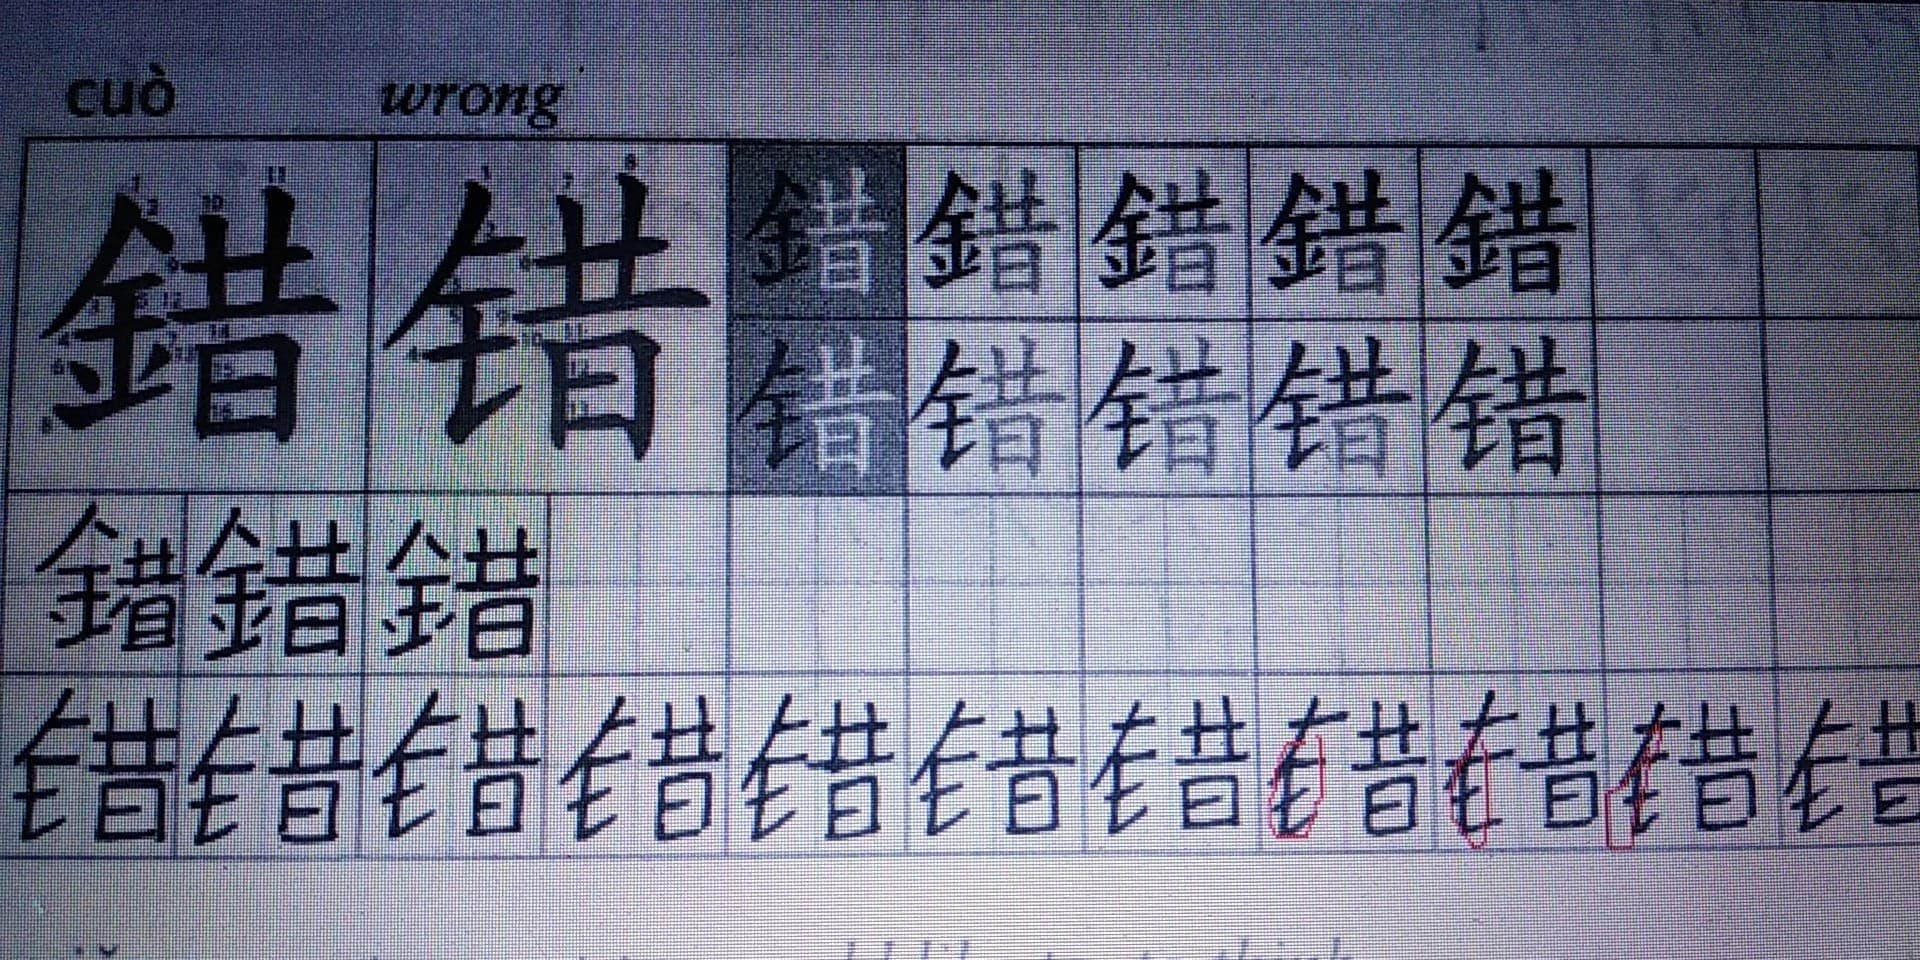 cuò wrong
錯 错 錯 錯 錯 錯 錯
错 错 错 错 错
錯 錯 錯
错 错 错 错 错 错 错 错 错 错 错